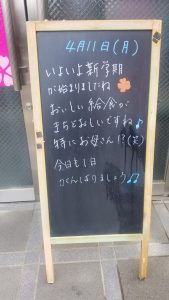 4月11日(月)
いよいよ新学期
が始まりましたね
おいしい給食が
まちどおしいですね♪
特にお母さん!?(笑)
今日も1日
がんばりましょう♪♪